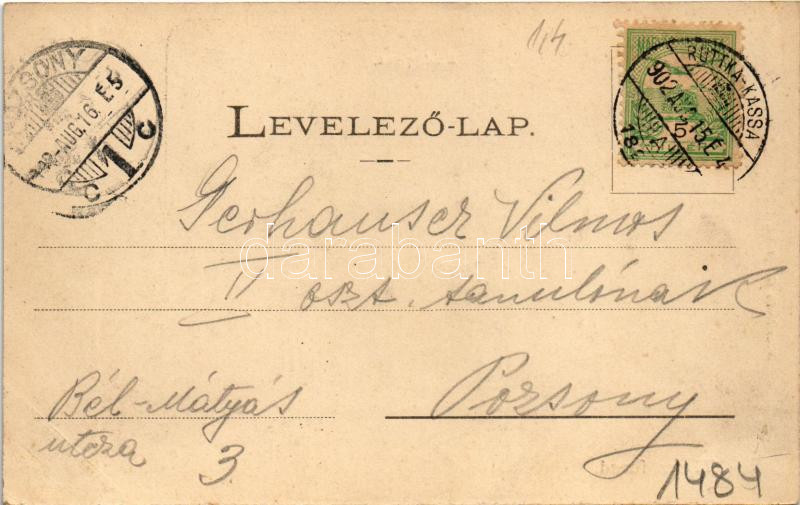 14
POZSONY
AUG. 16. E 5
C 1 C
RUTTKA-KASSA
902 AUG 15 E 4
5
LEVELEZŐ-LAP.
Gerhauser Vilmos
II oszt. tanulónak
Pozsony
Bél-Mátyás
utcza
3.
1484
darabanth